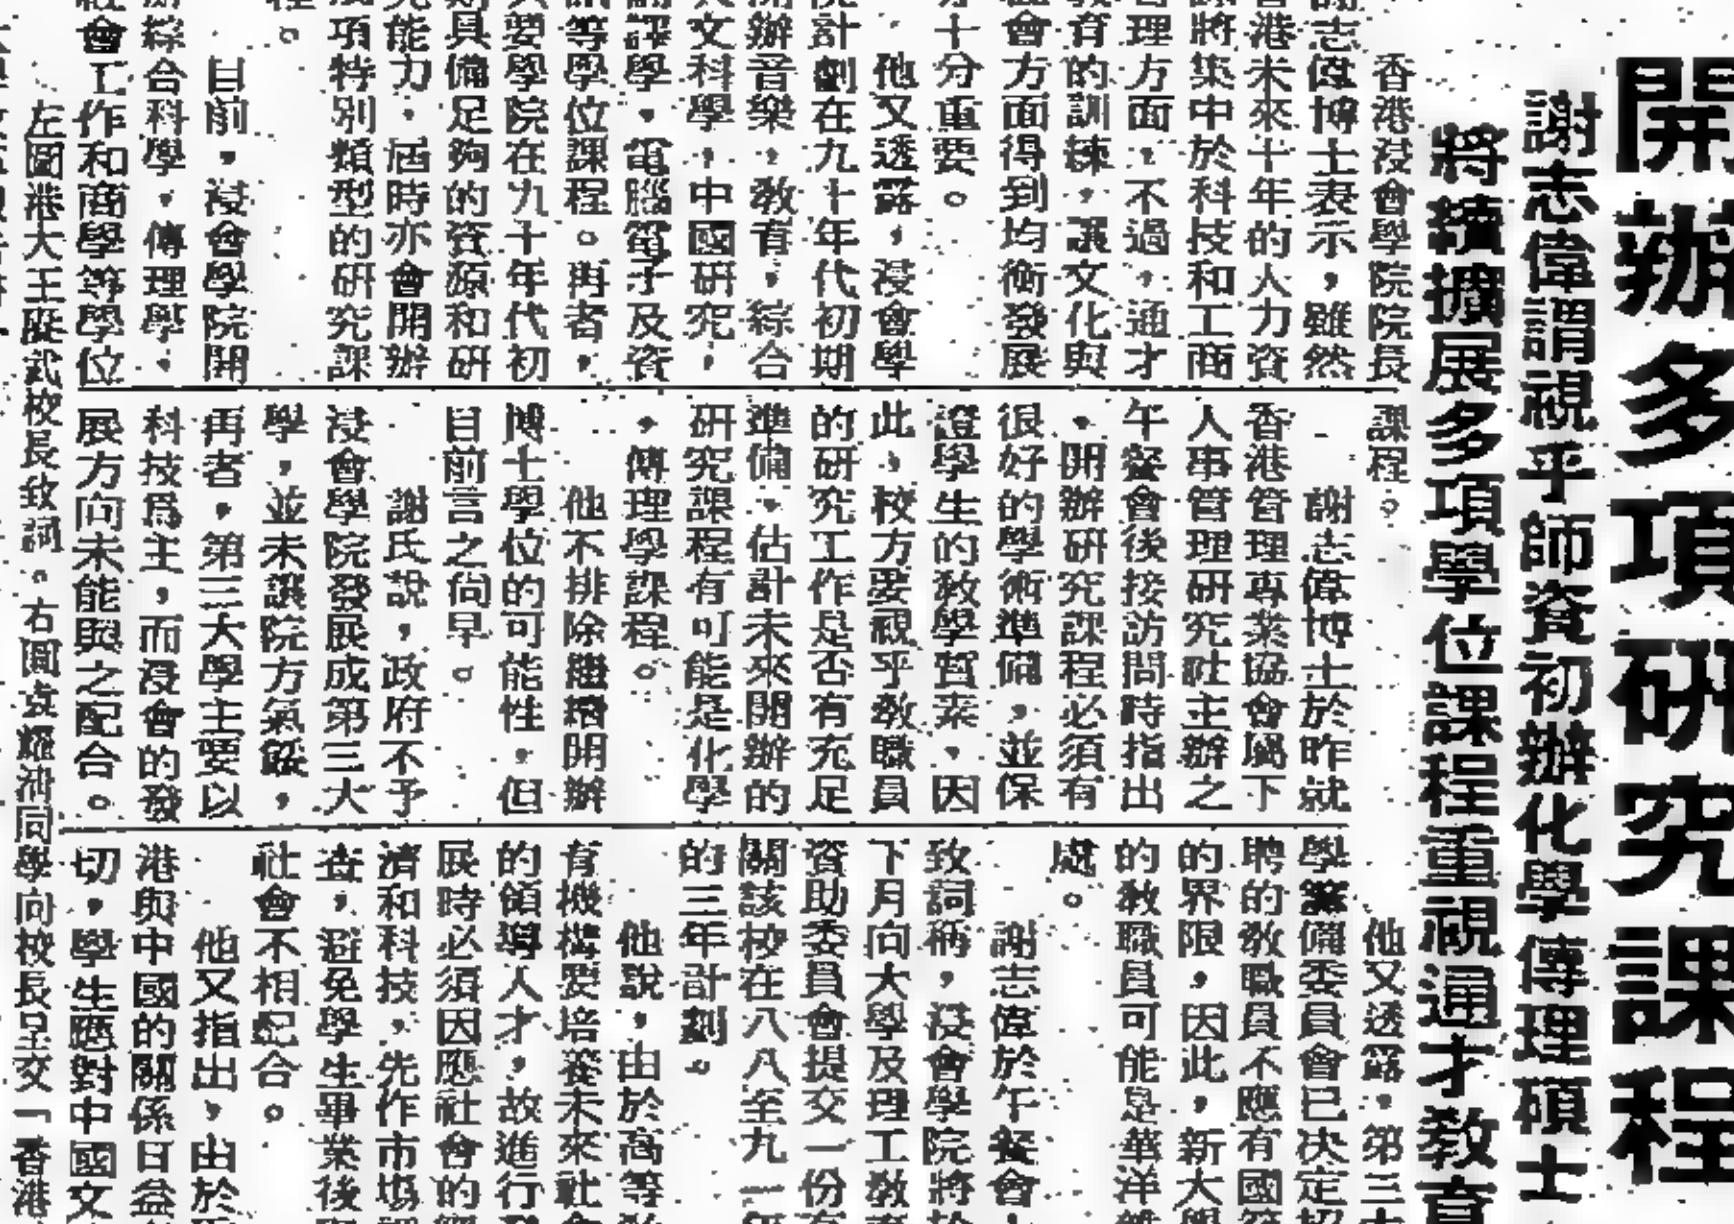 開辦多項研究課程
謝志偉謂視乎師資初辦化學傳理碩士
將續擴展多項學位課程重視通才教育
香港浸會學院院長
謝志偉博士表示，雖然
香港未來十年的人力資
將集中於科技和工商
管理方面，不過，通才
教育的訓練，讓文化與
社會方面得到均衡發展
十分重要。
他又透露，浸會學
院計劃在九十年代初期
開辦音樂，教育，綜合
文科學，中國研究，
翻譯學，電腦電子及資
訊等學位課程。再者，
要學院在九十年代初
期具備足夠的資源和研
究能力，屆時亦會開辦
項特別類型的研究課
程。
目前，浸會學院開
辦綜合科學，傳理學，
社會工作和商學等學位
課程。
謝志偉博士於昨就
香港管理專業協會屬下
人事管理研究社主辦之
午餐會後接訪問時指出
，開辦研究課程必須有
很好的學術準備，並保
證學生的教學質素，因
此，校方要視乎教職員
的研究工作是否有充足
準備，估計未來開辦的
研究課程有可能是化學
，傳理學課程。
他不排除繼增開辦
博士學位的可能性，但
目前言之尚早。
謝氏說，政府不予
浸會學院發展成第三大
學，並未讓院方氣餒，
再者，第三大學主要以
科技為主，而浸會的發
展方向未能與之配合。
他又透露，第三大
學籌備委員會已決定招
聘的教職員不應有國籍
的界限，因此，新大學
的教職員可能是華洋雜
處。
謝志偉於午餐會上
致詞稱，浸會學院將於
下月向大學及理工教育
資助委員會提交一份有
關該校在八八至九一年
的三年計劃。
他說，由於高等教
有機構要培養未來社會
的領導人才，故進行發
展時必須因應社會的經
濟和科技，先作市場調
查，避免學生畢業後與
社會不相配合。
他又指出，由於
港與中國的關係日益
切，學生應對中國文
左圖港大王賡武校長致詞。右圖袁耀鴻同學向校長呈交「香港